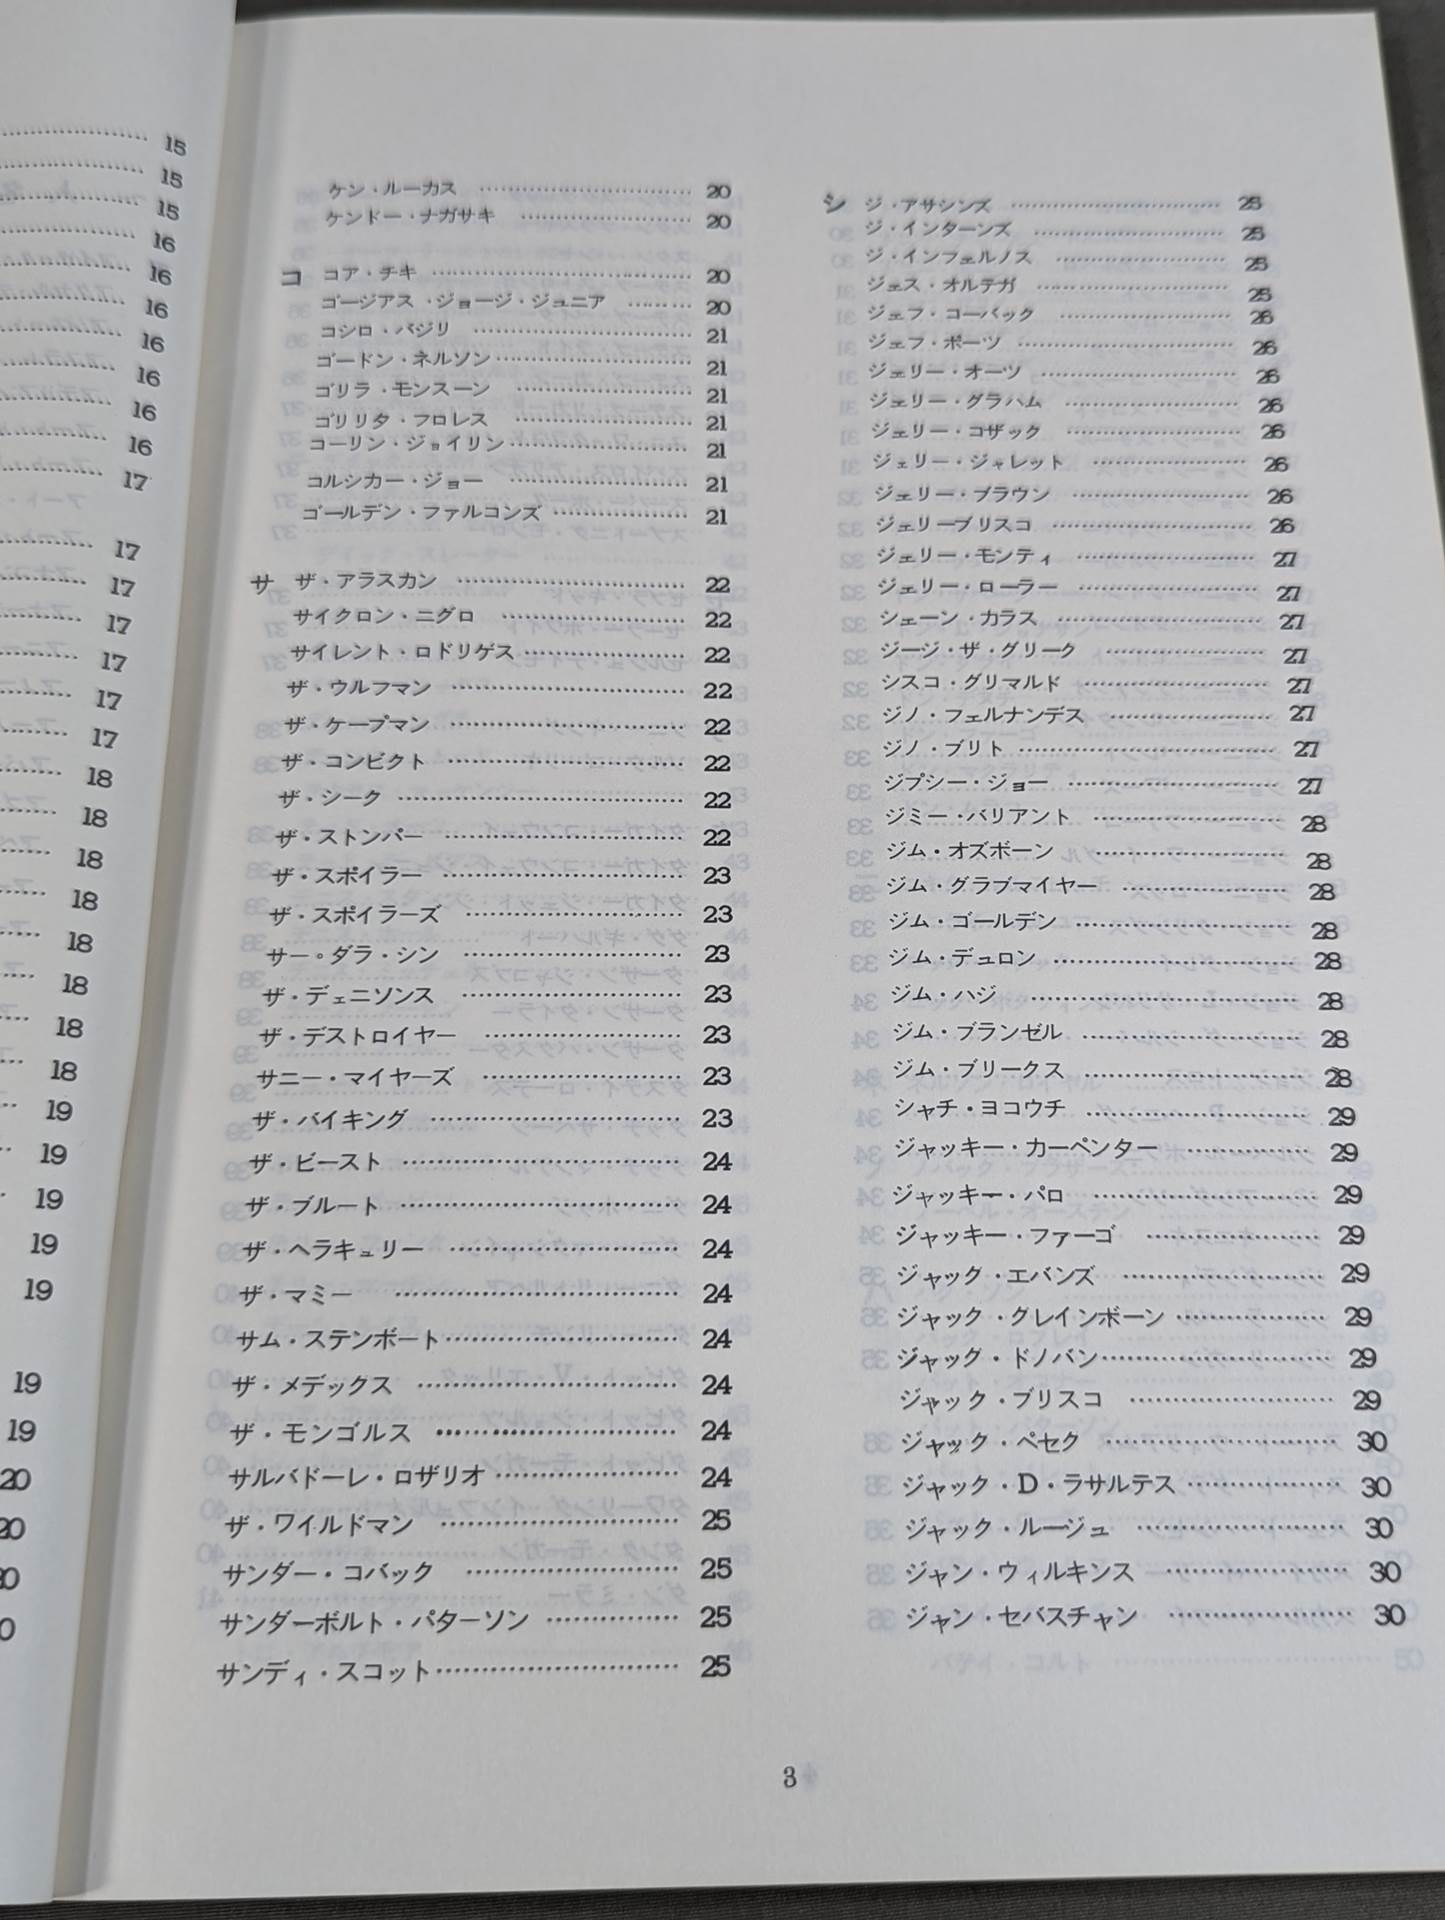 15
15
15
16
16
16
16
16
16
16
17
17
17
17
17
17
17
18
18
18
18
18
18
18
18
19
19
19
19
19
19
19
20
ケン・ルーカス ………… 20
ケンドー・ナガサキ ………… 20
コ コア・チキ ………… 20
ゴージアス・ジョージ・ジュニア ………… 20
コシロ・バジリ ………… 21
ゴードン・ネルソン ………… 21
ゴリラ・モンスーン ………… 21
ゴリリタ・フロレス ………… 21
コーリン・ジョイリン ………… 21
コルシカー・ジョー ………… 21
ゴールデン・ファルコンズ ………… 21
サ ザ・アラスカン ………… 22
サイクロン・ニグロ ………… 22
サイレント・ロドリゲス ………… 22
ザ・ウルフマン ………… 22
ザ・ケープマン ………… 22
ザ・コンビクト ………… 22
ザ・シーク ………… 22
ザ・ストンパー ………… 22
ザ・スポイラー ………… 23
ザ・スポイラーズ ………… 23
サー。ダラ・シン ………… 23
ザ・デェニソンス ………… 23
ザ・デストロイヤー ………… 23
サニー・マイヤーズ ………… 23
ザ・バイキング ………… 23
ザ・ビースト ………… 24
ザ・ブルート ………… 24
ザ・ヘラキュリー ………… 24
ザ・マミー ………… 24
サム・ステンボート ………… 24
ザ・メデックス ………… 24
ザ・モンゴルス ………… 24
サルバドーレ・ロザリオ ………… 24
ザ・ワイルドマン ………… 25
サンダー・コバック ………… 25
サンダーボルト・パターソン ………… 25
サンディ・スコット ………… 25
シ ジ・アサシンズ ………… 25
ジ・インターンズ ………… 25
ジ・インフェルノス ………… 25
ジェス・オルテガ ………… 25
ジェフ・コーバック ………… 26
ジェフ・ポーツ ………… 26
ジェリー・オーツ ………… 26
ジェリー・グラハム ………… 26
ジェリー・コザック ………… 26
ジェリー・ジャレット ………… 26
ジェリー・ブラウン ………… 26
ジェリーブリスコ ………… 26
ジェリー・モンティ ………… 27
ジェリー・ローラー ………… 27
シェーン・カラス ………… 27
ジージ・ザ・グリーク ………… 27
シスコ・グリマルド ………… 27
ジノ・フェルナンデス ………… 27
ジノ・ブリト ………… 27
ジプシー・ジョー ………… 27
ジミー・バリアント ………… 28
ジム・オズボーン ………… 28
ジム・グラブマイヤー ………… 28
ジム・ゴールデン ………… 28
ジム・デュロン ………… 28
ジム・ハジ ………… 28
ジム・ブランゼル ………… 28
ジム・ブリークス ………… 28
シャチ・ヨコウチ ………… 29
ジャッキー・カーペンター ………… 29
ジャッキー・パロ ………… 29
ジャッキー・ファーゴ ………… 29
ジャック・エバンズ ………… 29
ジャック・グレインボーン ………… 29
ジャック・ドノバン ………… 29
ジャック・ブリスコ ………… 29
ジャック・ペセク ………… 30
ジャック・D・ラサルテス ………… 30
ジャック・ルージュ ………… 30
ジャン・ウィルキンス ………… 30
ジャン・セバスチャン ………… 30
3